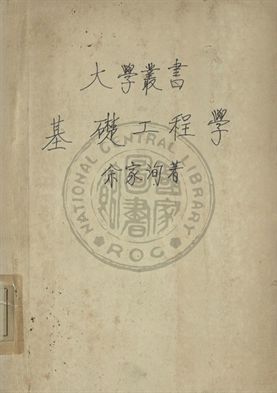 大學叢書
基礎工程學
余家洵著
NATIONAL CENTRAL LIBRARY
ROC
國家圖書館